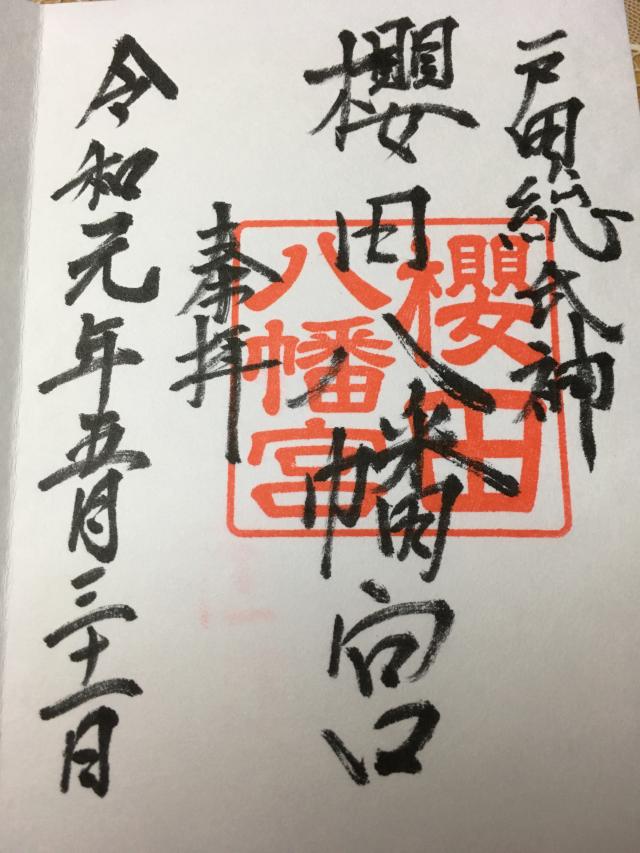 戸田総氏神
櫻田八幡宮
奉拝
令和元年五月三十一日
櫻田
八幡宮